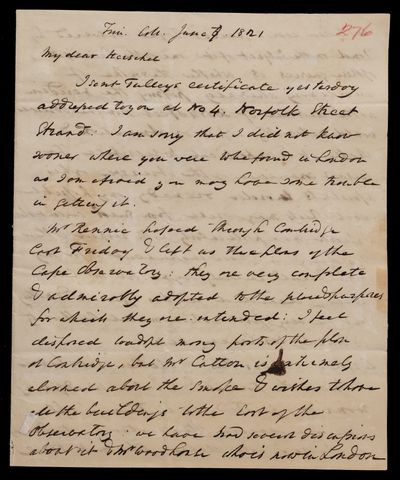 Trin. Coll. June 7 1821
276
My dear Herschel
I sent Tulleys certificate yesterday
addressed to you at No 4. Norfolk Street
Strand: I am sorry that I did not know
sooner where you were to be found in London
as I am afraid you may have some trouble
in getting it.
Mr Rennie passed through Cambridge
last Friday & left us the plans of the
Cape Observatory: they are very complete
& admirably adapted to the purposes
for which they are intended: I feel
disposed to adopt many parts of the plan
at Cambridge, but Mr Catton is extremely
alarmed about the smoke & wishes to have
all the buildings to the East of the
Observatory: we have had several discussions
about it & Mr Woodhouse who is now in London